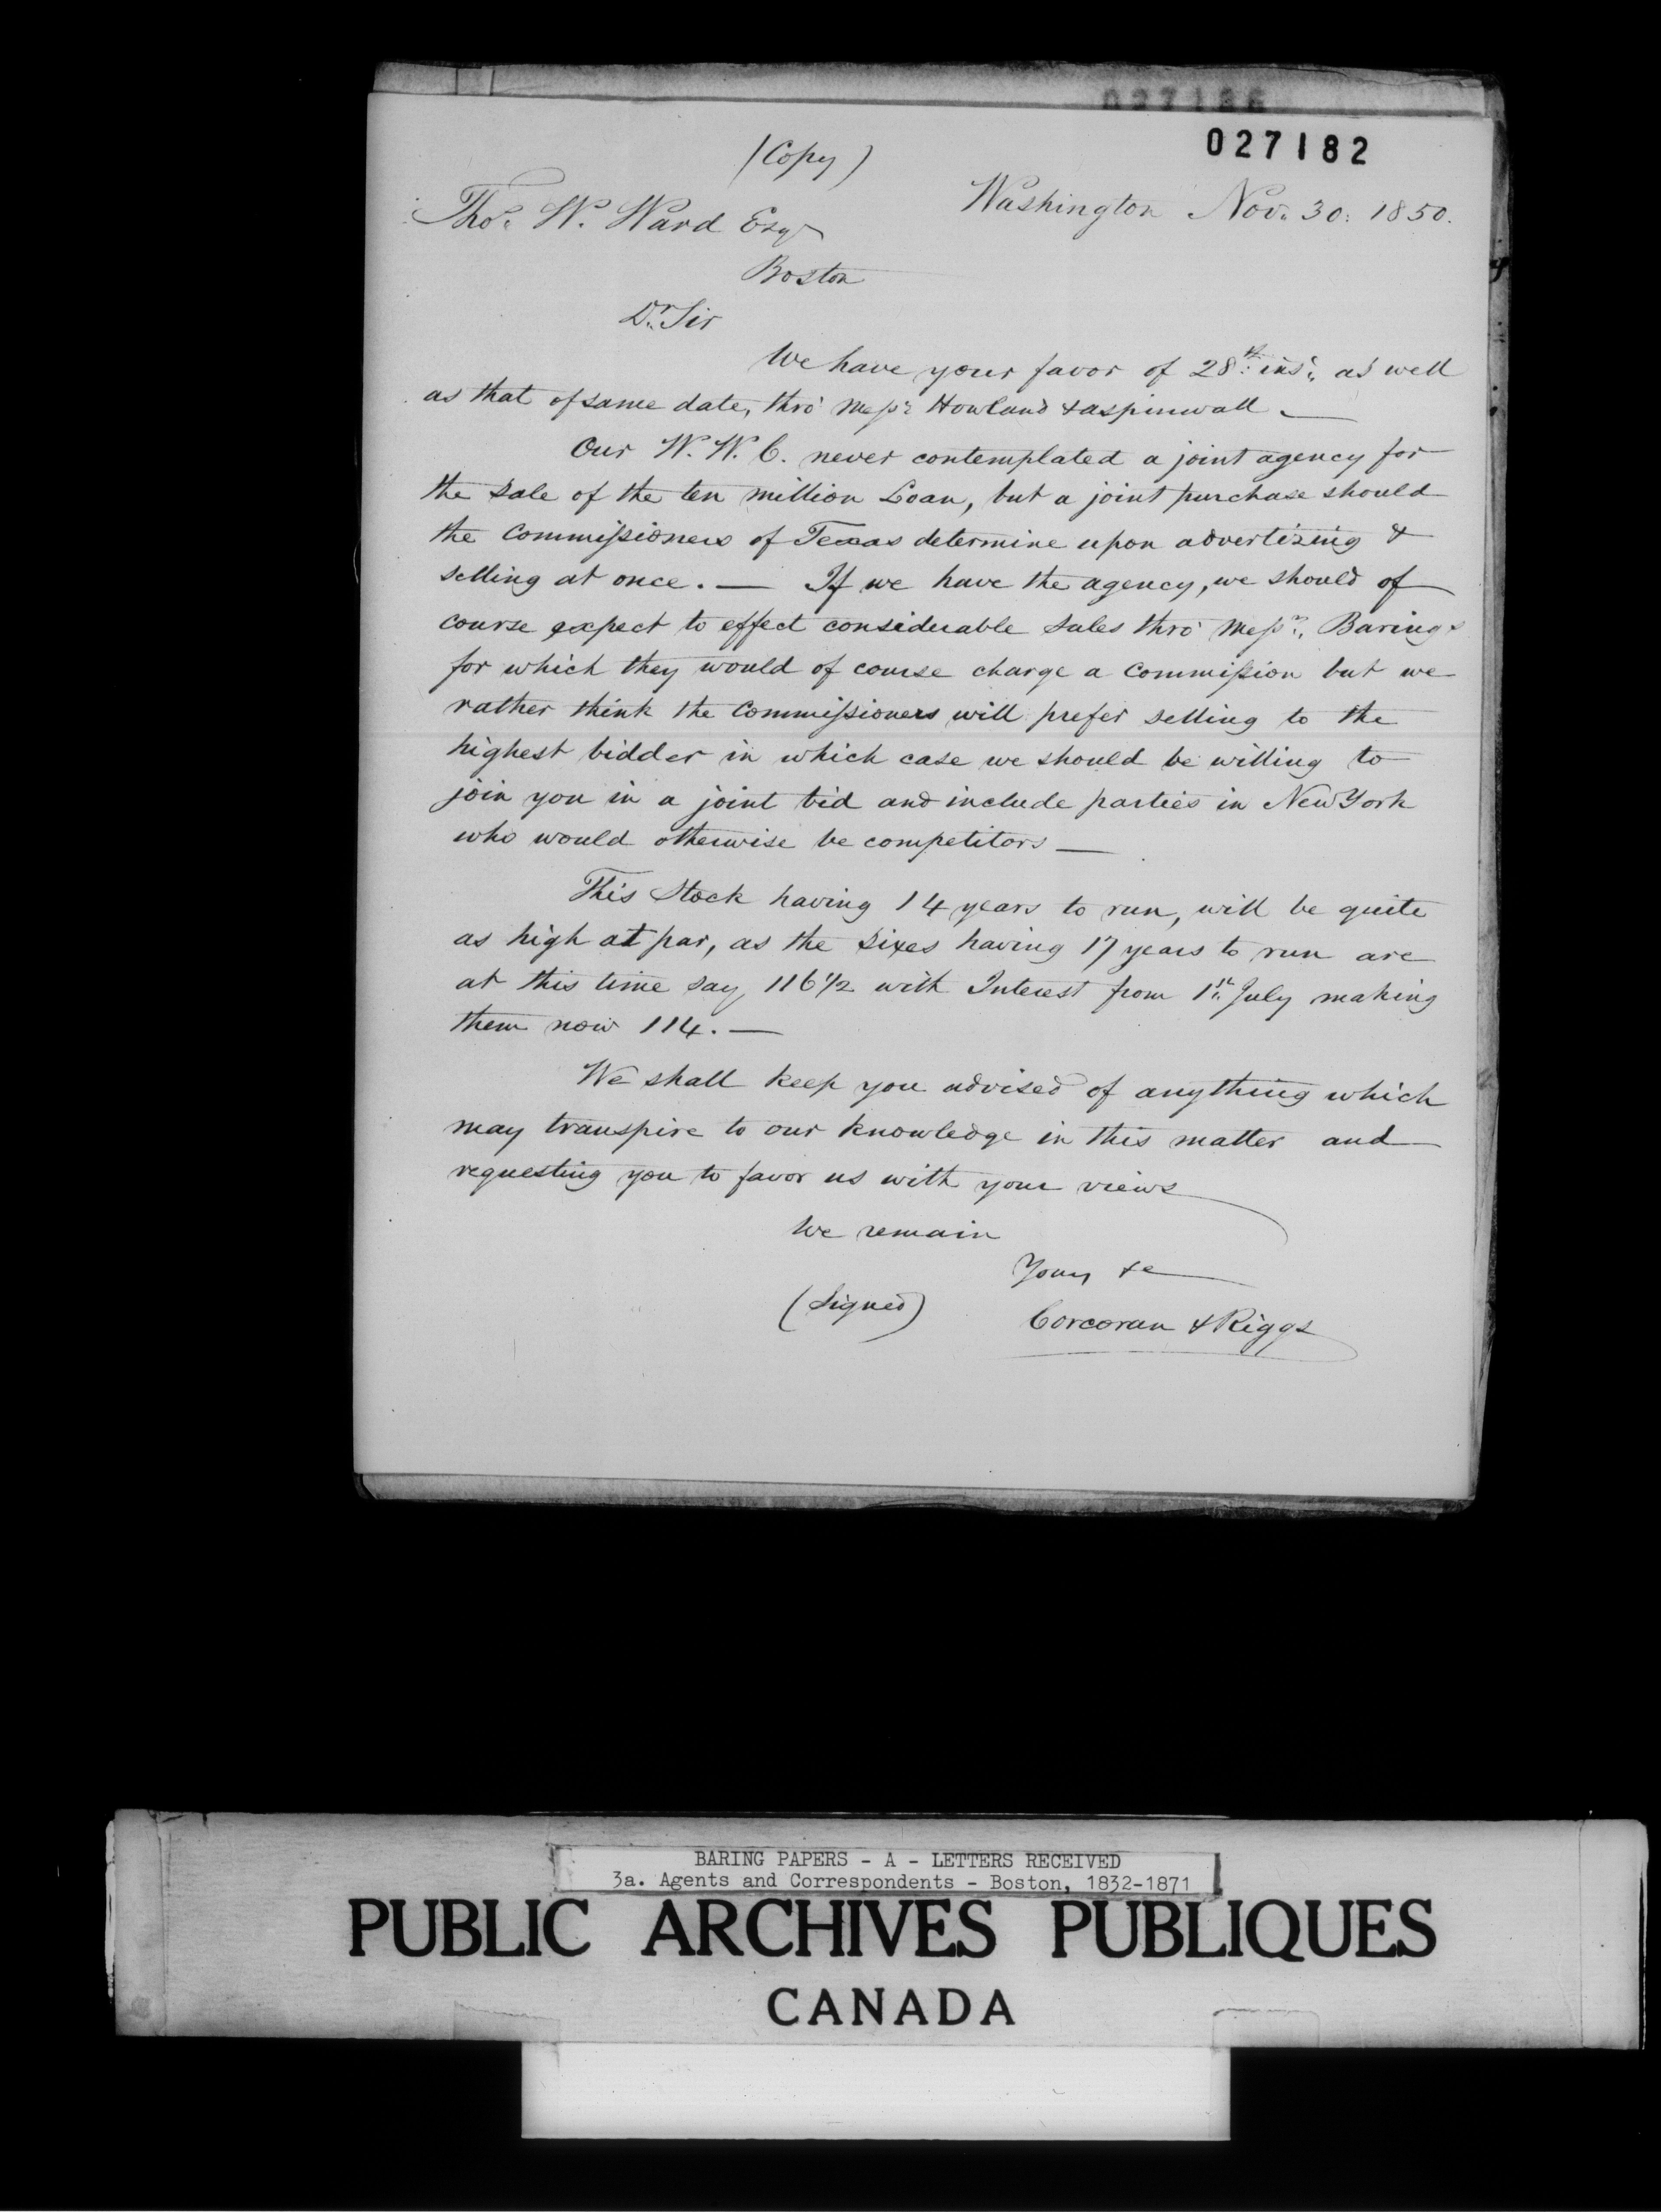 027186
027182
(Copy)
Washington Nov. 30: 1850.
Thos. W. Ward Esqr
Boston
Dr. Sir
We have your favor of 28th inst. as well
as that of same date, thro' Messrs Howland & Aspinwall —
Our W. W. C. never contemplated a joint agency for
the sale of the ten million Loan, but a joint purchase should
the Commissioners of Texas determine upon advertizing &
selling at once. — If we have the agency, we should of
course expect to effect considerable sales thro' Messrs. Barings
for which they would of course charge a Commission but we
rather think the Commissioners will prefer selling to the
highest bidder in which case we should be willing to
join you in a joint bid and include parties in New York
who would otherwise be competitors —
This Stock having 14 years to run, will be quite
as high at par, as the Sixes having 17 years to run are
at this time say 116 1/2 with Interest from 1st July making
them now 114. —
We shall keep you advised of anything which
may transpire to our knowledge in this matter and
requesting you to favor us with your views
We remain
Yours &c
(Signed)
Corcoran & Riggs
BARING PAPERS - A - LETTERS RECEIVED
3a. Agents and Correspondents - Boston, 1832-1871
PUBLIC ARCHIVES PUBLIQUES
CANADA